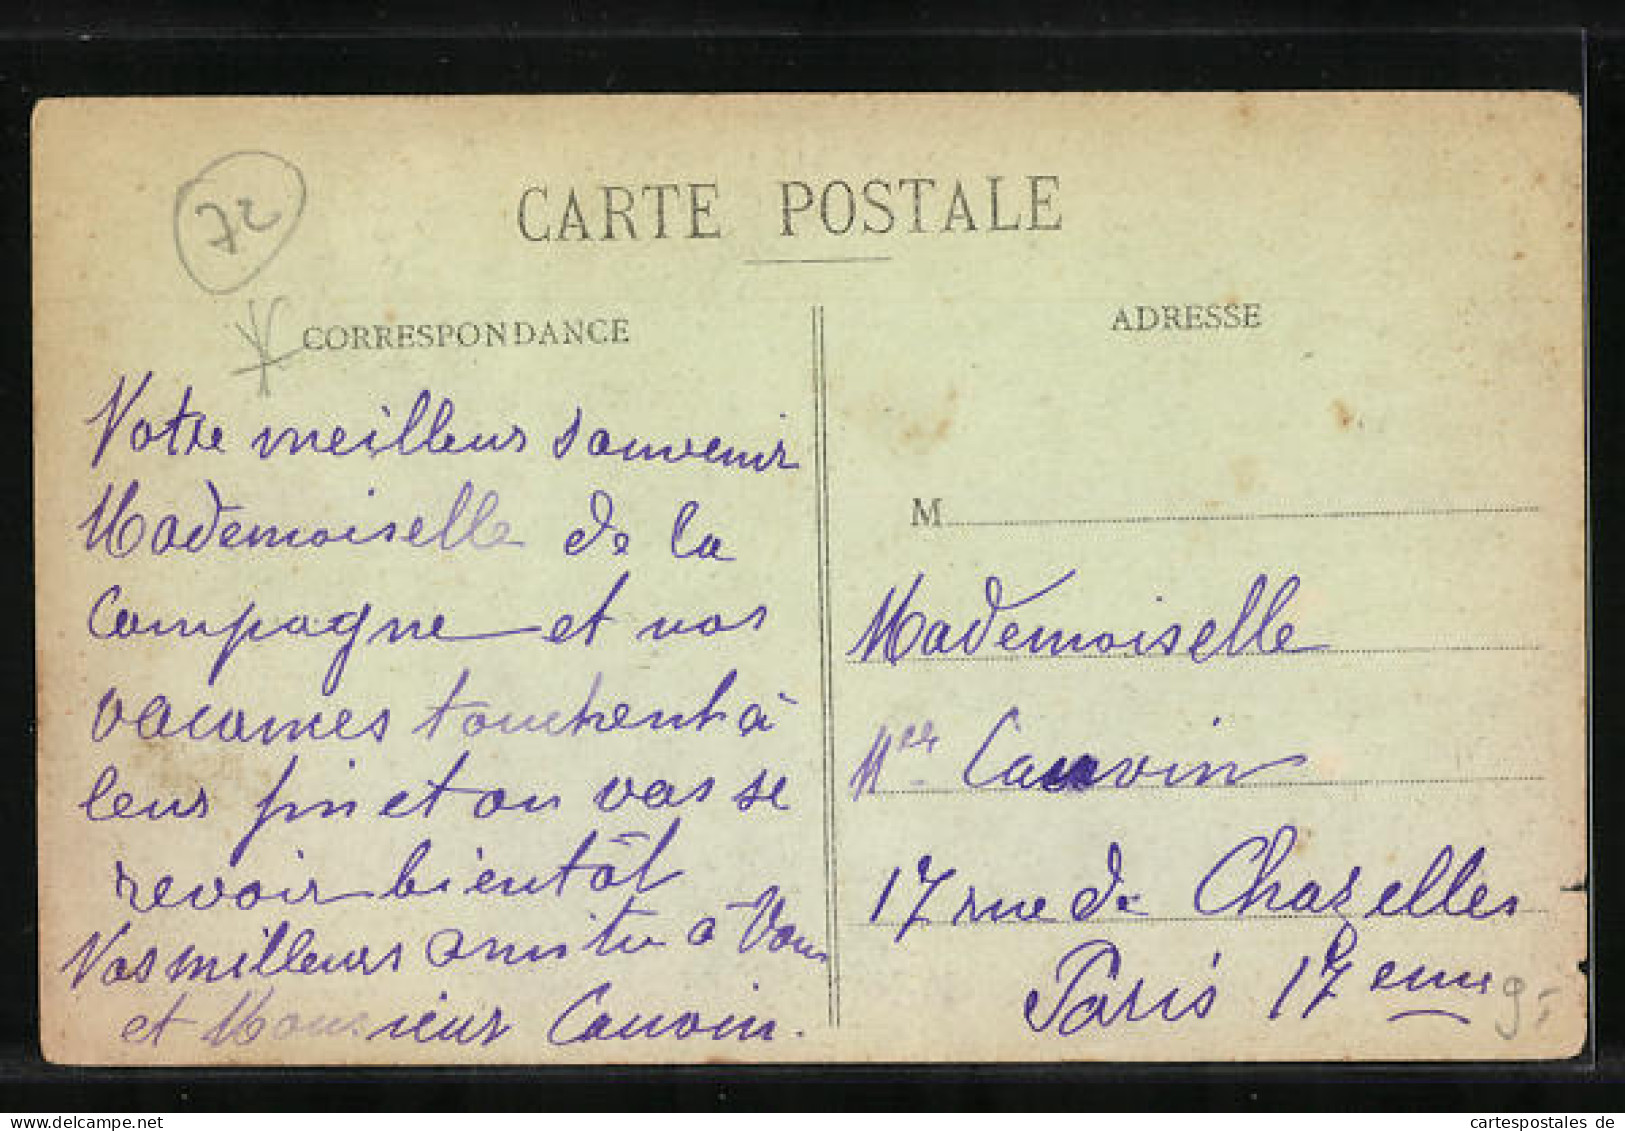 72
CARTE POSTALE
CORRESPONDANCE
Votre meilleur souvenir
Mademoiselle de la
Compagne et vos
vacances touchent à
leur fin et on vas se
revoir bientôt
Vos milleurs amitie à Vous
et Monsieur Cauvin.
ADRESSE
M
Mademoiselle
Mlle Cauvin
17 rue de Chazelles
Paris 17 eme
9,-
cartespostales de